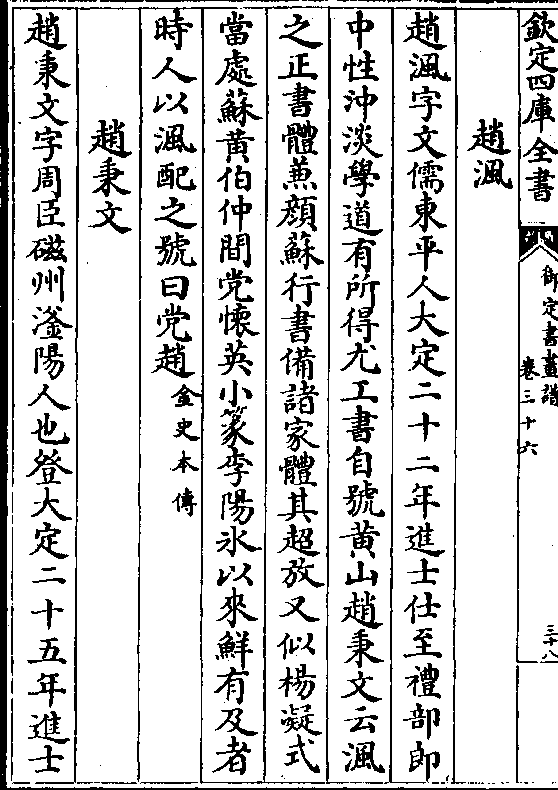 欽定四庫全書
御定書畫譜
卷三十六
三十八
趙渢
趙渢字文儒東平人大定二十二年進士仕至禮部郎
中性沖淡學道有所得尤工書自號黄山趙秉文云渢
之正書體兼顔蘇行書備諸家體其超放又似楊凝式
當處蘇黄伯仲間党懐英小篆李陽氷以來鮮有及者
時人以渢配之號曰党趙金史本傳
趙秉文
趙秉文字周臣磁州滏陽人也登大定二十五年進士